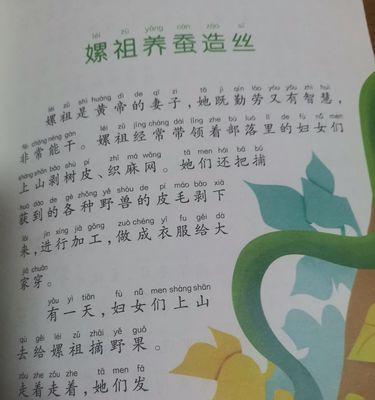 léi zǔ yǎng cán zào sī
嫘祖养蚕造丝
léi zǔ shì huáng dì de qī zi tā jì qín láo yòu yǒu zhì huì
嫘祖是黄帝的妻子，她既勤劳又有智慧，
fēi cháng néng gàn léi zǔ jīng cháng dài lǐng zhe bù luò lǐ de fù nǚ men
非常能干。嫘祖经常带领着部落里的妇女们
shàng shān bāo shù pí zhī má wǎng tā men hái bǎ bǔ
上山剥树皮、织麻网。她们还把捕
huò dào de gè zhǒng yě shòu de pí máo bāo xià
获到的各种野兽的皮毛剥下
lái jìn xíng jiā gōng zuò chéng yī fu gěi dà
来，进行加工，做成衣服给大
jiā chuān
家穿。
yǒu yì tiān fù nǚ men shàng shān
有一天，妇女们上山
qù gěi léi zǔ zhāi yě guǒ
去给嫘祖摘野果。
zǒu zhe zǒu zhe tā men fā
走着走着，她们发